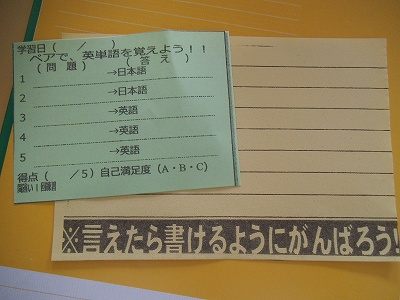 学習日(　/　)
ペアで、英単語を覚えよう!!
(問題)　(答え)
1　→日本語
2　→日本語
3　→英語
4　→英語
5　→英語
得点(　/5)自己満足度(A・B・C)
※言えたら書けるようにがんばろう!